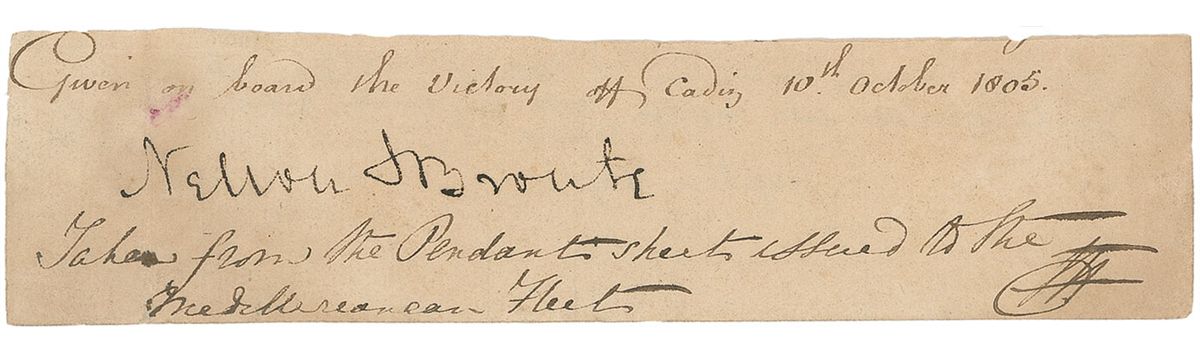 Given on board the Victory off Cadiz 10th October 1805.
Nelson & Bronte
Taken from the Pendant sheet issued to the
Mediterranean Fleet